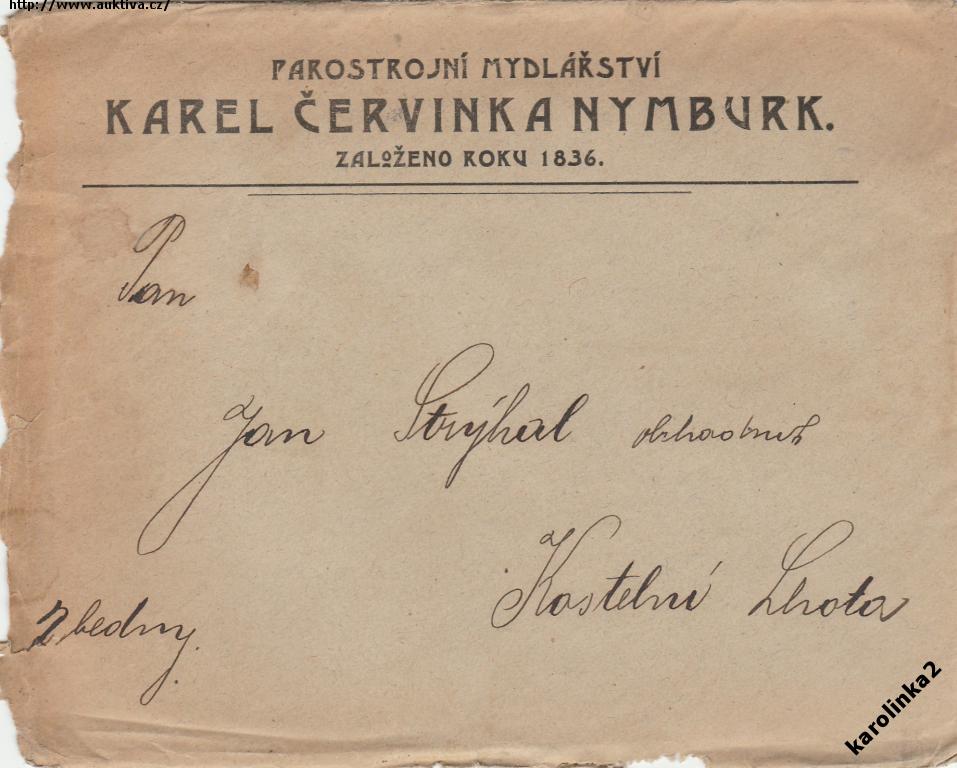 http://www.auktiva.cz/
PAROSTROJNÍ MYDLÁŘSTVÍ
KAREL ČERVINKA NYMBURK.
ZALOŽENO ROKU 1836.
Pan
Jan Strýhal obchodník
Kostelní Lhota
2 bedny.
karolinka2